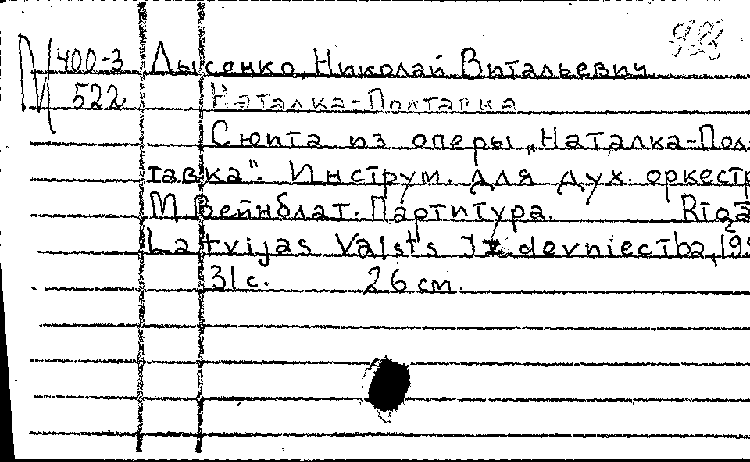 М 400-3 Лысенко, Николай Витальевич
522 Наталка-Полтавка
Сюита из оперы „Наталка-Пол-
тавка". Инструм. для дух. оркестр
М. Вейнблат. Партитура. Rīgā
Latvijas Valsts Izdevniecība, 195
31 с. 26 см.